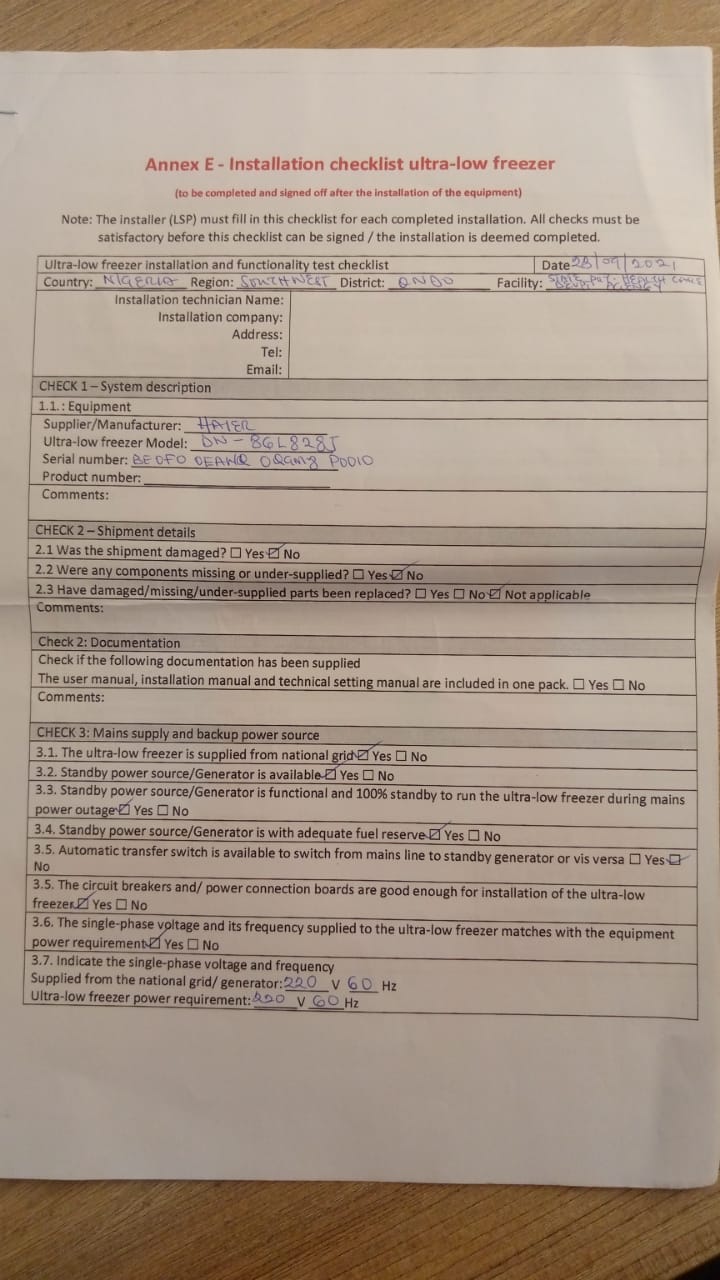 Annex E - Installation checklist ultra-low freezer
(to be completed and signed off after the installation of the equipment)
Note: The installer (LSP) must fill in this checklist for each completed installation. All checks must be
satisfactory before this checklist can be signed / the installation is deemed completed.
Ultra-low freezer installation and functionality test checklist Date 28/09/2021
Country: NIGERIA Region: SOUTHWEST District: ONDO Facility: STATE HEALTH
Installation technician Name:
Installation company:
Address:
Tel:
Email:
CHECK 1 – System description
1.1.: Equipment
Supplier/Manufacturer: HAIER
Ultra-low freezer Model: DW-86L828J
Serial number:
Product number:
Comments:
CHECK 2 – Shipment details
2.1 Was the shipment damaged? ☐ Yes ☑ No
2.2 Were any components missing or under-supplied? ☐ Yes ☑ No
2.3 Have damaged/missing/under-supplied parts been replaced? ☐ Yes ☐ No ☑ Not applicable
Comments:
Check 2: Documentation
Check if the following documentation has been supplied
The user manual, installation manual and technical setting manual are included in one pack. ☐ Yes ☐ No
Comments:
CHECK 3: Mains supply and backup power source
3.1. The ultra-low freezer is supplied from national grid ☑ Yes ☐ No
3.2. Standby power source/Generator is available ☑ Yes ☐ No
3.3. Standby power source/Generator is functional and 100% standby to run the ultra-low freezer during mains
power outage ☑ Yes ☐ No
3.4. Standby power source/Generator is with adequate fuel reserve ☑ Yes ☐ No
3.5. Automatic transfer switch is available to switch from mains line to standby generator or vis versa ☐ Yes ☑
No
3.5. The circuit breakers and/ power connection boards are good enough for installation of the ultra-low
freezer ☑ Yes ☐ No
3.6. The single-phase voltage and its frequency supplied to the ultra-low freezer matches with the equipment
power requirement ☑ Yes ☐ No
3.7. Indicate the single-phase voltage and frequency
Supplied from the national grid/ generator: 220 V 60 Hz
Ultra-low freezer power requirement: 220 V 60 Hz